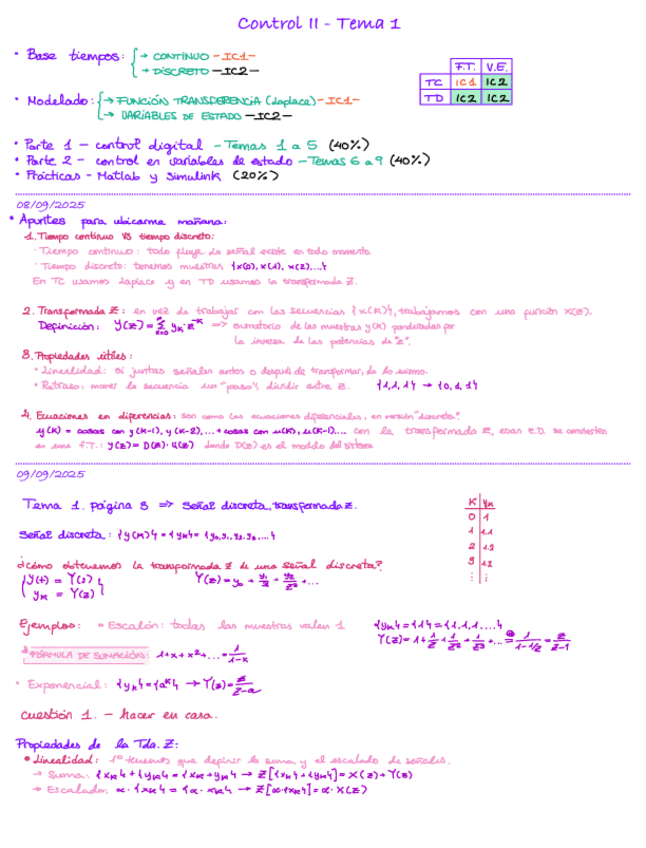 Control II - Tema 1
• Base tiempos: → CONTÍNUO -IC1-
→ DISCRETO -IC2-
F.T. V.E.
TC IC1 IC2
TD IC2 IC2
• Modelado: → FUNCIÓN TRANSFERENCIA (Laplace) -IC1-
→ VARIABLES DE ESTADO -IC2-
• Parte 1 - control digital - Temas 1 a 5 (40%)
• Parte 2 - control en variables de estado - Temas 6 a 9 (40%)
• Prácticas - Matlab y Simulink (20%)
08/09/2025
• Apuntes para ubicarme mañana:
1. Tiempo continuo VS tiempo discreto:
· Tiempo continuo: todo fluye. La señal existe en todo momento.
· Tiempo discreto: tenemos muestras {x(0), x(1), x(2),...}
En TC usamos Laplace y en TD usamos la transformada Z.
2. Transformada Z: en vez de trabajar con las secuencias {x(k)}, trabajamos con una función X(z).
Definición: Y(z) = Σ yk·z^-k => sumatorio de las muestras y(k) ponderadas por
la inversa de las potencias de "z".
3. Propiedades útiles:
• Linealidad: si juntas señales antes o después de transformar, da lo mismo.
• Retraso: mover la secuencia un "paso", dividir entre z. {1,1,1} → {0,1,1}
4. Ecuaciones en diferencias: son como las ecuaciones diferenciales, en versión "discreta".
y(k) = cosas con y(k-1), y(k-2),... + cosas con u(k), u(k-1).... con la transformada Z, esas E.D. se convierten
en una f.T.: y(z) = D(z)·u(z) donde D(z) es el modelo del sistema
09/09/2025
Tema 1. Página 3 => Señal discreta, transformada Z.
K yk
0 1
1 1.1
2 1.2
3 1.2
⋮ ⋮
Señal discreta: {y(k)} = {yk} = {y0, y1, y2, y3,...}
¿Cómo obtenemos la transformada Z de una señal discreta?
y(t) = Y(s)
yk = Y(z)
Y(z) = y0 + y1/z + y2/z² + ...
Ejemplos: • Escalón: todas las muestras valen 1
{yk} = {1} = {1,1,1,...}
Y(z) = 1 + 1/z + 1/z² + 1/z³ + ... = 1/(1-1/z) = z/(z-1)
FÓRMULA DE SUMACIÓN: 1+x+x²+... = 1/(1-x)
• Exponencial: {yk} = {a^k} → Y(z) = z/(z-a)
Cuestión 1. - hacer en casa.
Propiedades de la Tda. Z:
• Linealidad: 1º tenemos que definir la suma y el escalado de señales.
→ Suma: {xk} + {yk} = {xk + yk} → Z[{xk} + {yk}] = X(z) + Y(z)
→ Escalado: α·{xk} = {α·xk} → Z[α·{xk}] = α·X(z)